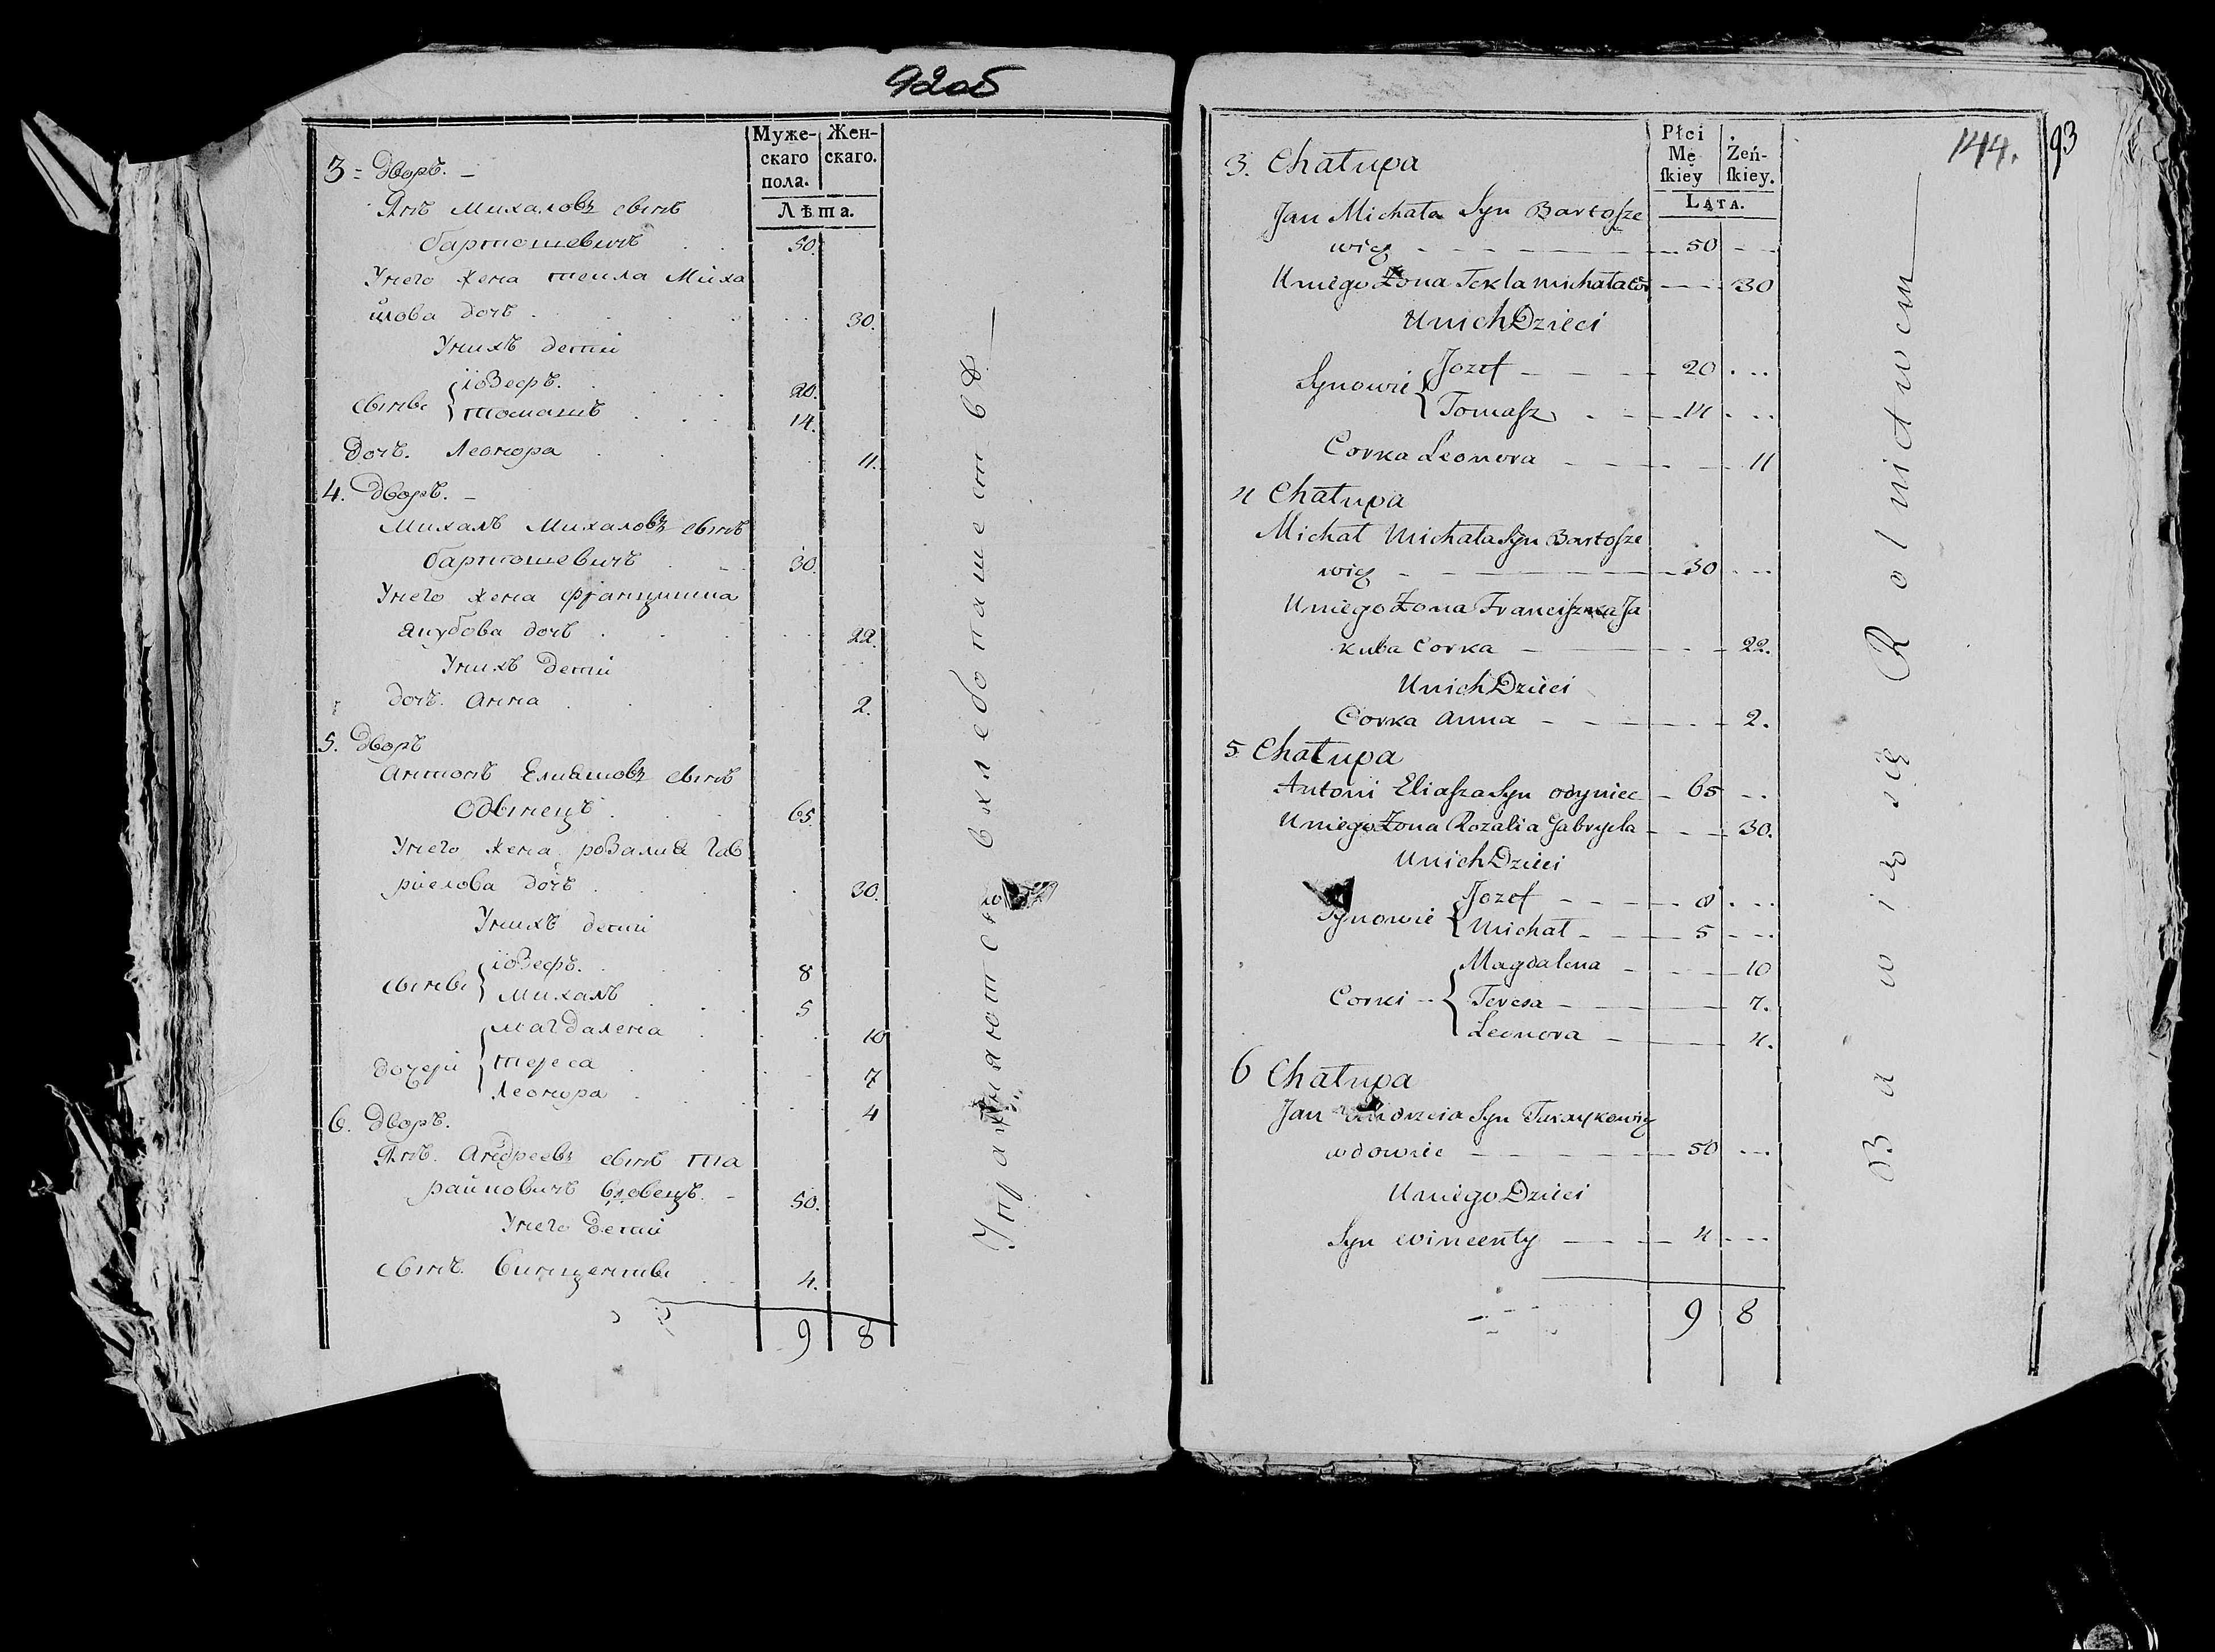 92об
Муже- Жен-
скаго скаго.
пола.
Лѣта.
3 = Дворъ. –
Янъ Михаловъ сынъ
бартошевичъ 50.
Унего жена текла Миха
йлова дочь 30.
Унихъ дети
сыны { іозефъ. 20.
томашъ 14.
дочь. Леонора 11.
4. Дворъ. –
Михалъ Михаловъ сынъ
бартошевичъ 30.
Унего жена францишка
якубова дочь 22.
Унихъ дети
дочь. Анна 2.
5. Дворъ
Антонъ Елиашовъ сынъ
Одынецъ 65.
Унего жена розалиа гав
риелова дочь 30.
Унихъ дети
сыны { іозефъ. 8
Михалъ 5
дочери { магдалена 10
тереса 7
Леонора 4
6. Дворъ.
Янъ. Андреевъ сынъ та
райковичъ вдовецъ. – 50.
Унего дети
сынъ. винценты 4.
9 8
Упражняются в хлебопашестве
144. 93
Płci Żeń-
Mę ſkiey.
ſkiey
LATA.
3. Chałupa
Jan Michała Syn Bartosze
wicz 50
Uniego Żona Tekla michałaców 30
Unich Dzieci
Synowie { Jozef 20
Tomasz 14
Corka Leonora 11
4 Chałupa
Michał Michała Syn Bartosze
wicz 30
Uniego Żona Franciszka Ja
kuba Corka 22.
Unich Dzieci
Corka anna 2.
5 Chałupa
Antoni Eliasza Syn odyniec 65
Uniego Żona Rozalia Gabryela 30.
Unich Dzieci
Synowie { Jozef 8
Michał 5
Corki { Magdalena 10
Teresa 7.
Leonora 4.
6 Chałupa
Jan Andrzeia Syn Taraykowicz
wdowiec 50
Uniego Dzieci
Syn wincenty 4
9 8
Bawią się Rolnictwem